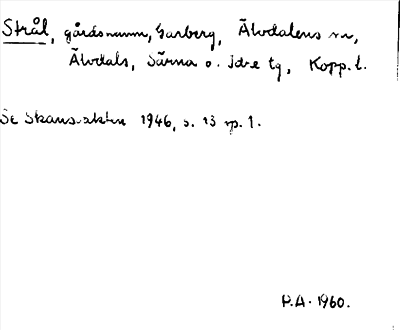 Strål, gårdsnamn, Garberg, Älvdalens sn,
Älvdals, Särna o. Idre tg, Kopp. l.
Se Skansvakten 1946, s. 13 sp. 1.
P.A. 1960.